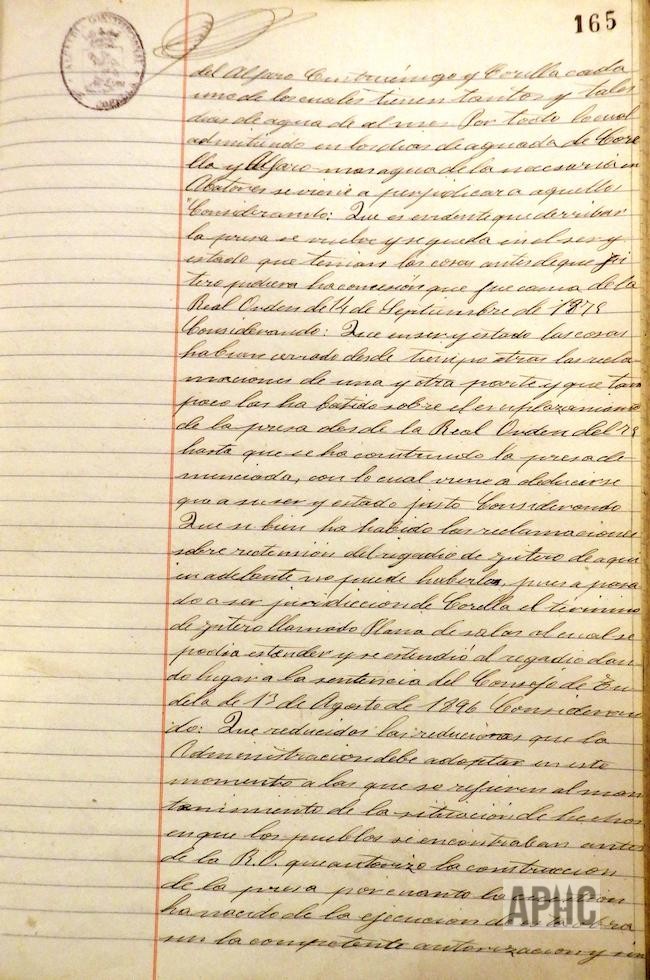 165
ALCALDIA CONSTITUCIONAL
CORELLA
del Alfaro Cintruénigo y Corella cada
uno de los cuales tienen tantos y tales
dias de agua de al mes Por todo lo cual
admitiendo en los dias de aguada de Core
lla y Alfaro mas agua de la necesaria en
se viene a perjudicar a aquellos
"Considerando: Que es evidente que derribar
la presa se vuelve y se queda en el ser y
estado que tenian las cosas antes de que Fi
tero pudiera ha concesión que fue causa de la
Real Orden de 14 de Septiembre de 1879
Considerando: Que en ser y estado las cosas
habian cerrado desde tiempo atras las recla
maciones de una y otra parte y que tam
poco las ha habido sobre el emplazamiento
de la presa desde la Real Orden del 79
hasta que se ha construido la presa de
nunciada, con lo cual viene a deducirse
que a su ser y estado justo Considerando
Que si bien ha habido las reclamaciones
sobre reetensión del regadio de Fitero de aqui
en adelante no puede haberlas, pues a pasa
do a ser jurisdiccion de Corella el termino
de Fitero llamado Plana de salas al cual se
podia estender y se estendió el regadio dan
do lugar a la sentencia del Consejo de Tu
dela de 13 de Agosto de 1896 Consideran
do: Que reducidas las reducciones que la
Administracion debe adoptar en este
momento a las que se refieren al man
tenimiento de la situación de hechos
en que los pueblos se encontraban antes
de la R.O. que autorizo la construccion
de la presa por cuanto la cuestion
ha nacido de la ejecucion de esta obra
sin la competente autorizacion y sin
APHC